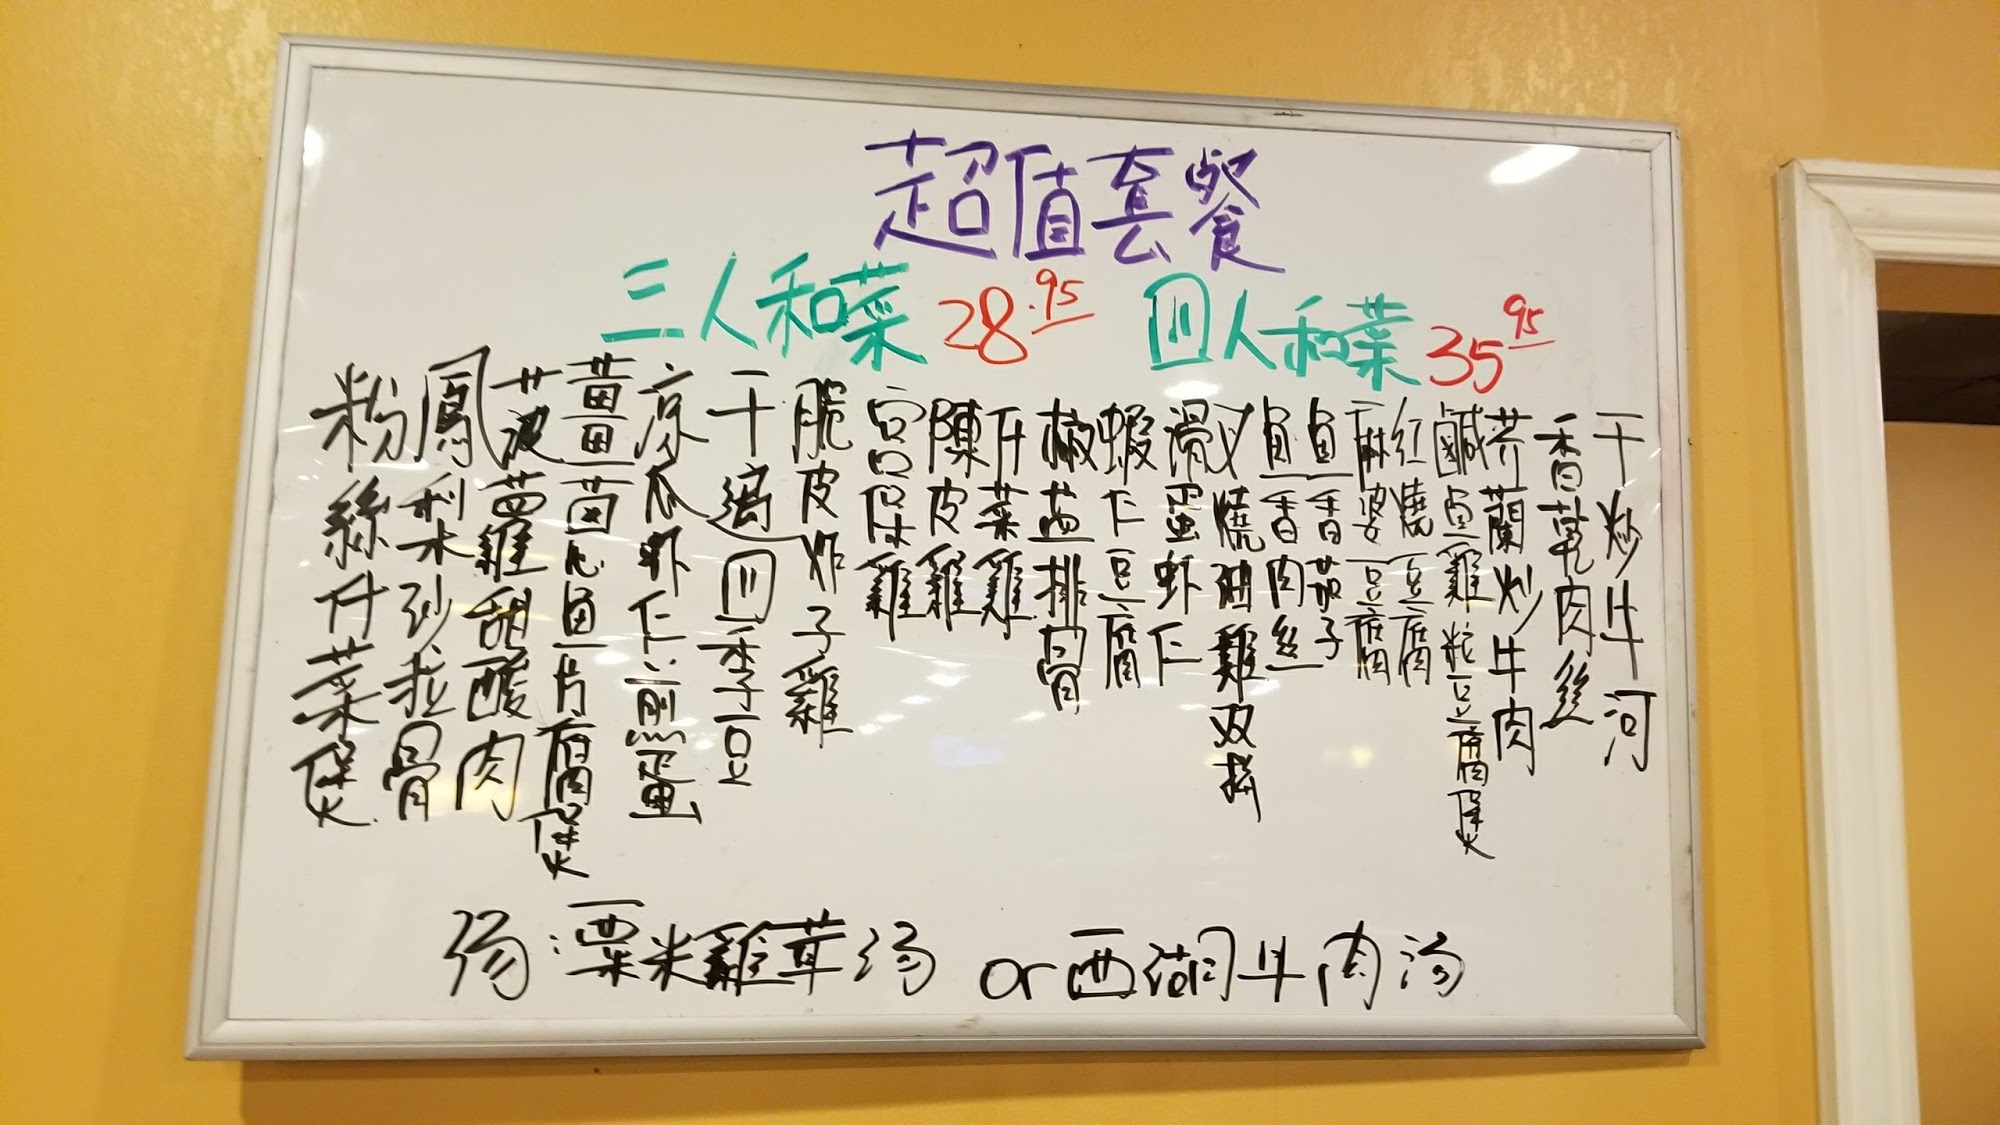 超值套餐
三人和菜 28.95
四人和菜 35.95
干炒牛河
香乾肉丝
芥蘭炒牛肉
鹹鱼雞粒豆腐煲
红燒豆腐
麻婆豆腐
鱼香茄子
鱼香肉丝
叉燒油雞双拼
滑蛋虾仁
蝦仁豆腐
椒盐排骨
什菜雞
陳皮雞
宫保雞
脆皮炸子雞
干煸四季豆
凉瓜虾仁煎蛋
鱼片腐煲
菠蘿甜酸肉
鳳梨沙拉骨
粉絲什菜煲
汤:粟米雞茸汤 or 西湖牛肉汤